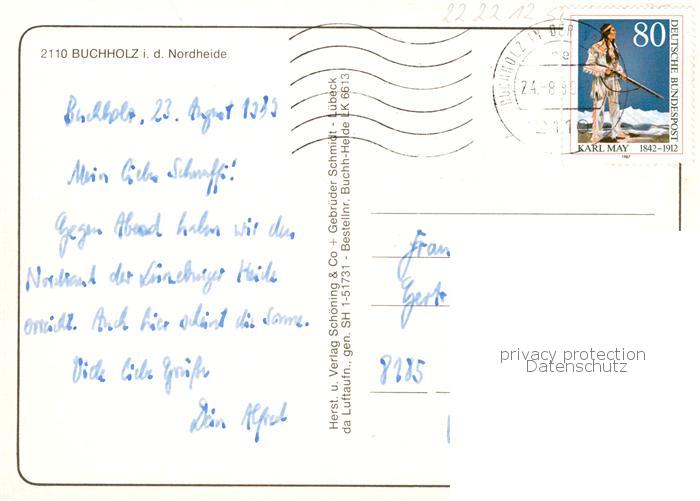 22 22 12
2110 BUCHHOLZ i. d. Nordheide
80
DEUTSCHE BUNDESPOST
KARL MAY 1842-1912
1987
BUCHHOLZ IN DER
24.-8.89
Buchholz, 23. August 1989
Mein liebes Schnuffi!
Gegen Abend haben wir den
Nordrand der Lüneburger Heide
erreicht. Auch hier scheint die Sonne.
Viele liebe Grüße
Dein Alfred
Herst. u. Verlag Schöning & Co + Gebrüder Schmidt - Lübeck
da Luftaufn., gen. SH 1-51731 - Bestellnr. Buchh-Heide LK 6613
Frau
Gertr
8185
privacy protection
Datenschutz